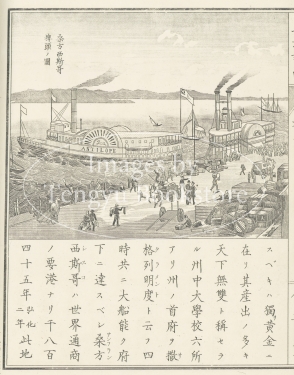 桑方西斯哥
埠頭ノ圖
ANTELOPE
スベキハ獨黄金ニ
在リ其産出ノ多キ
天下無雙ト稱セラ
ル州中大學校六所
アリ州ノ首府ヲ撒
格列明度ト云フ四
時共ニ大船能ク府
下ニ達スベシ桑方
西斯哥ハ世界通商
ノ要港ナリ千八百
四十五年弘化二年此地
Images by